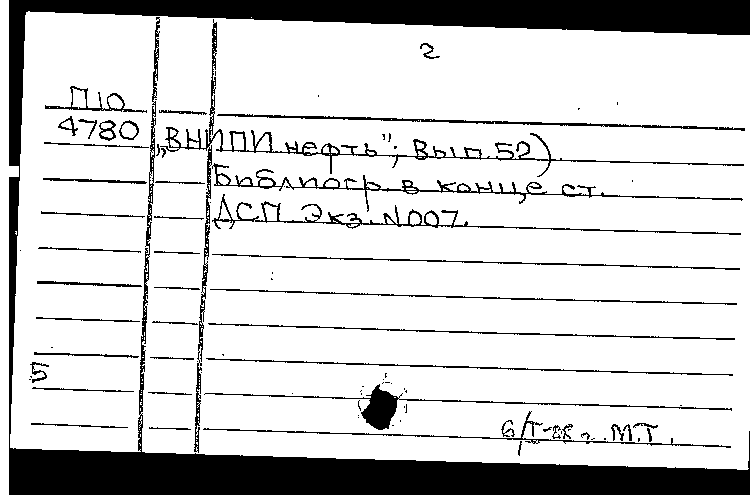 2
П10
4780 „ВНИПИ нефть"; Вып. 52)
Библиогр. в конце ст.
ДСП Экз. N007.
5
6/I-88 г. М.Т.